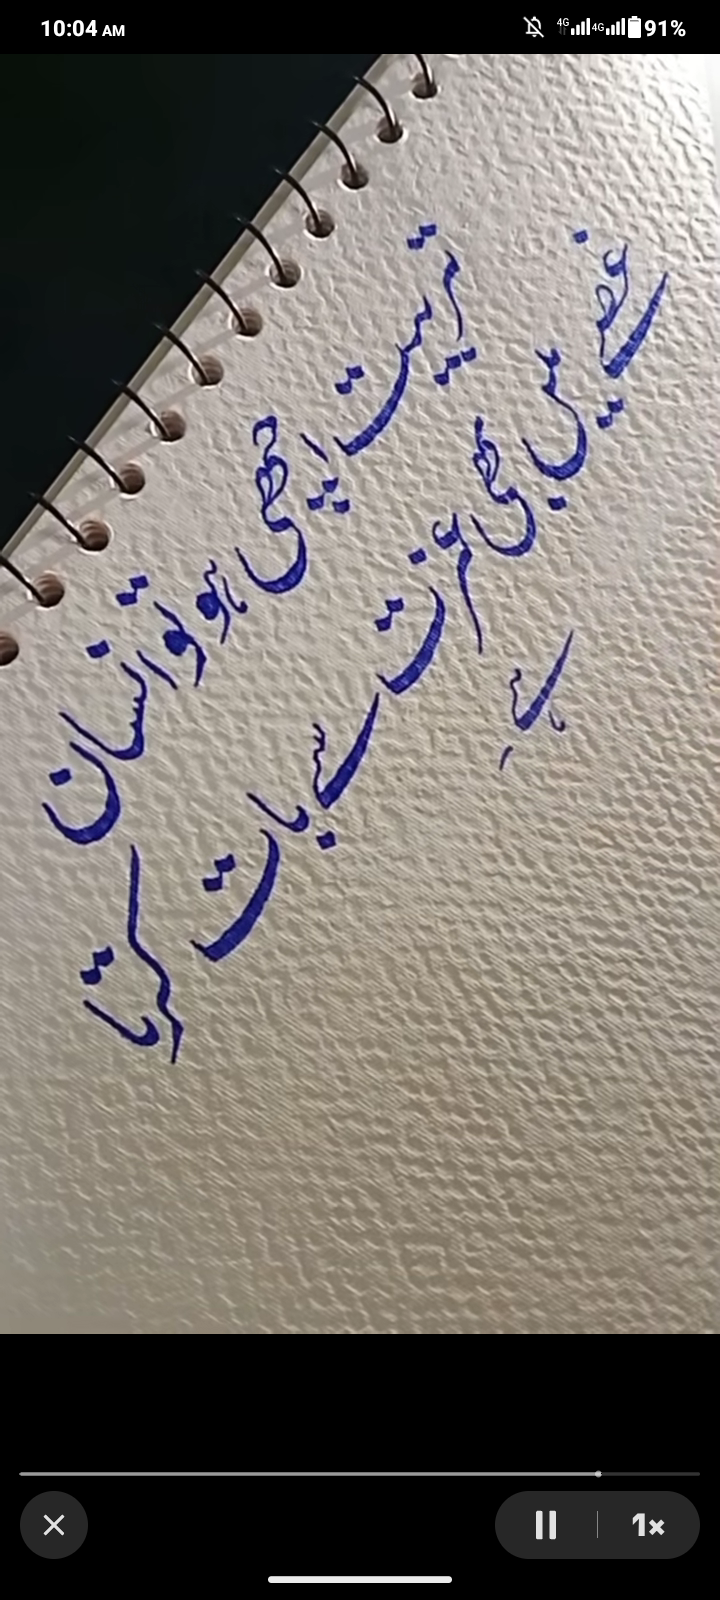 10:04 AM
4G 4G 91%
تربیت اچھی ہو تو انسان
غصے میں بھی عزت سے بات کرتا
ہے۔
1x